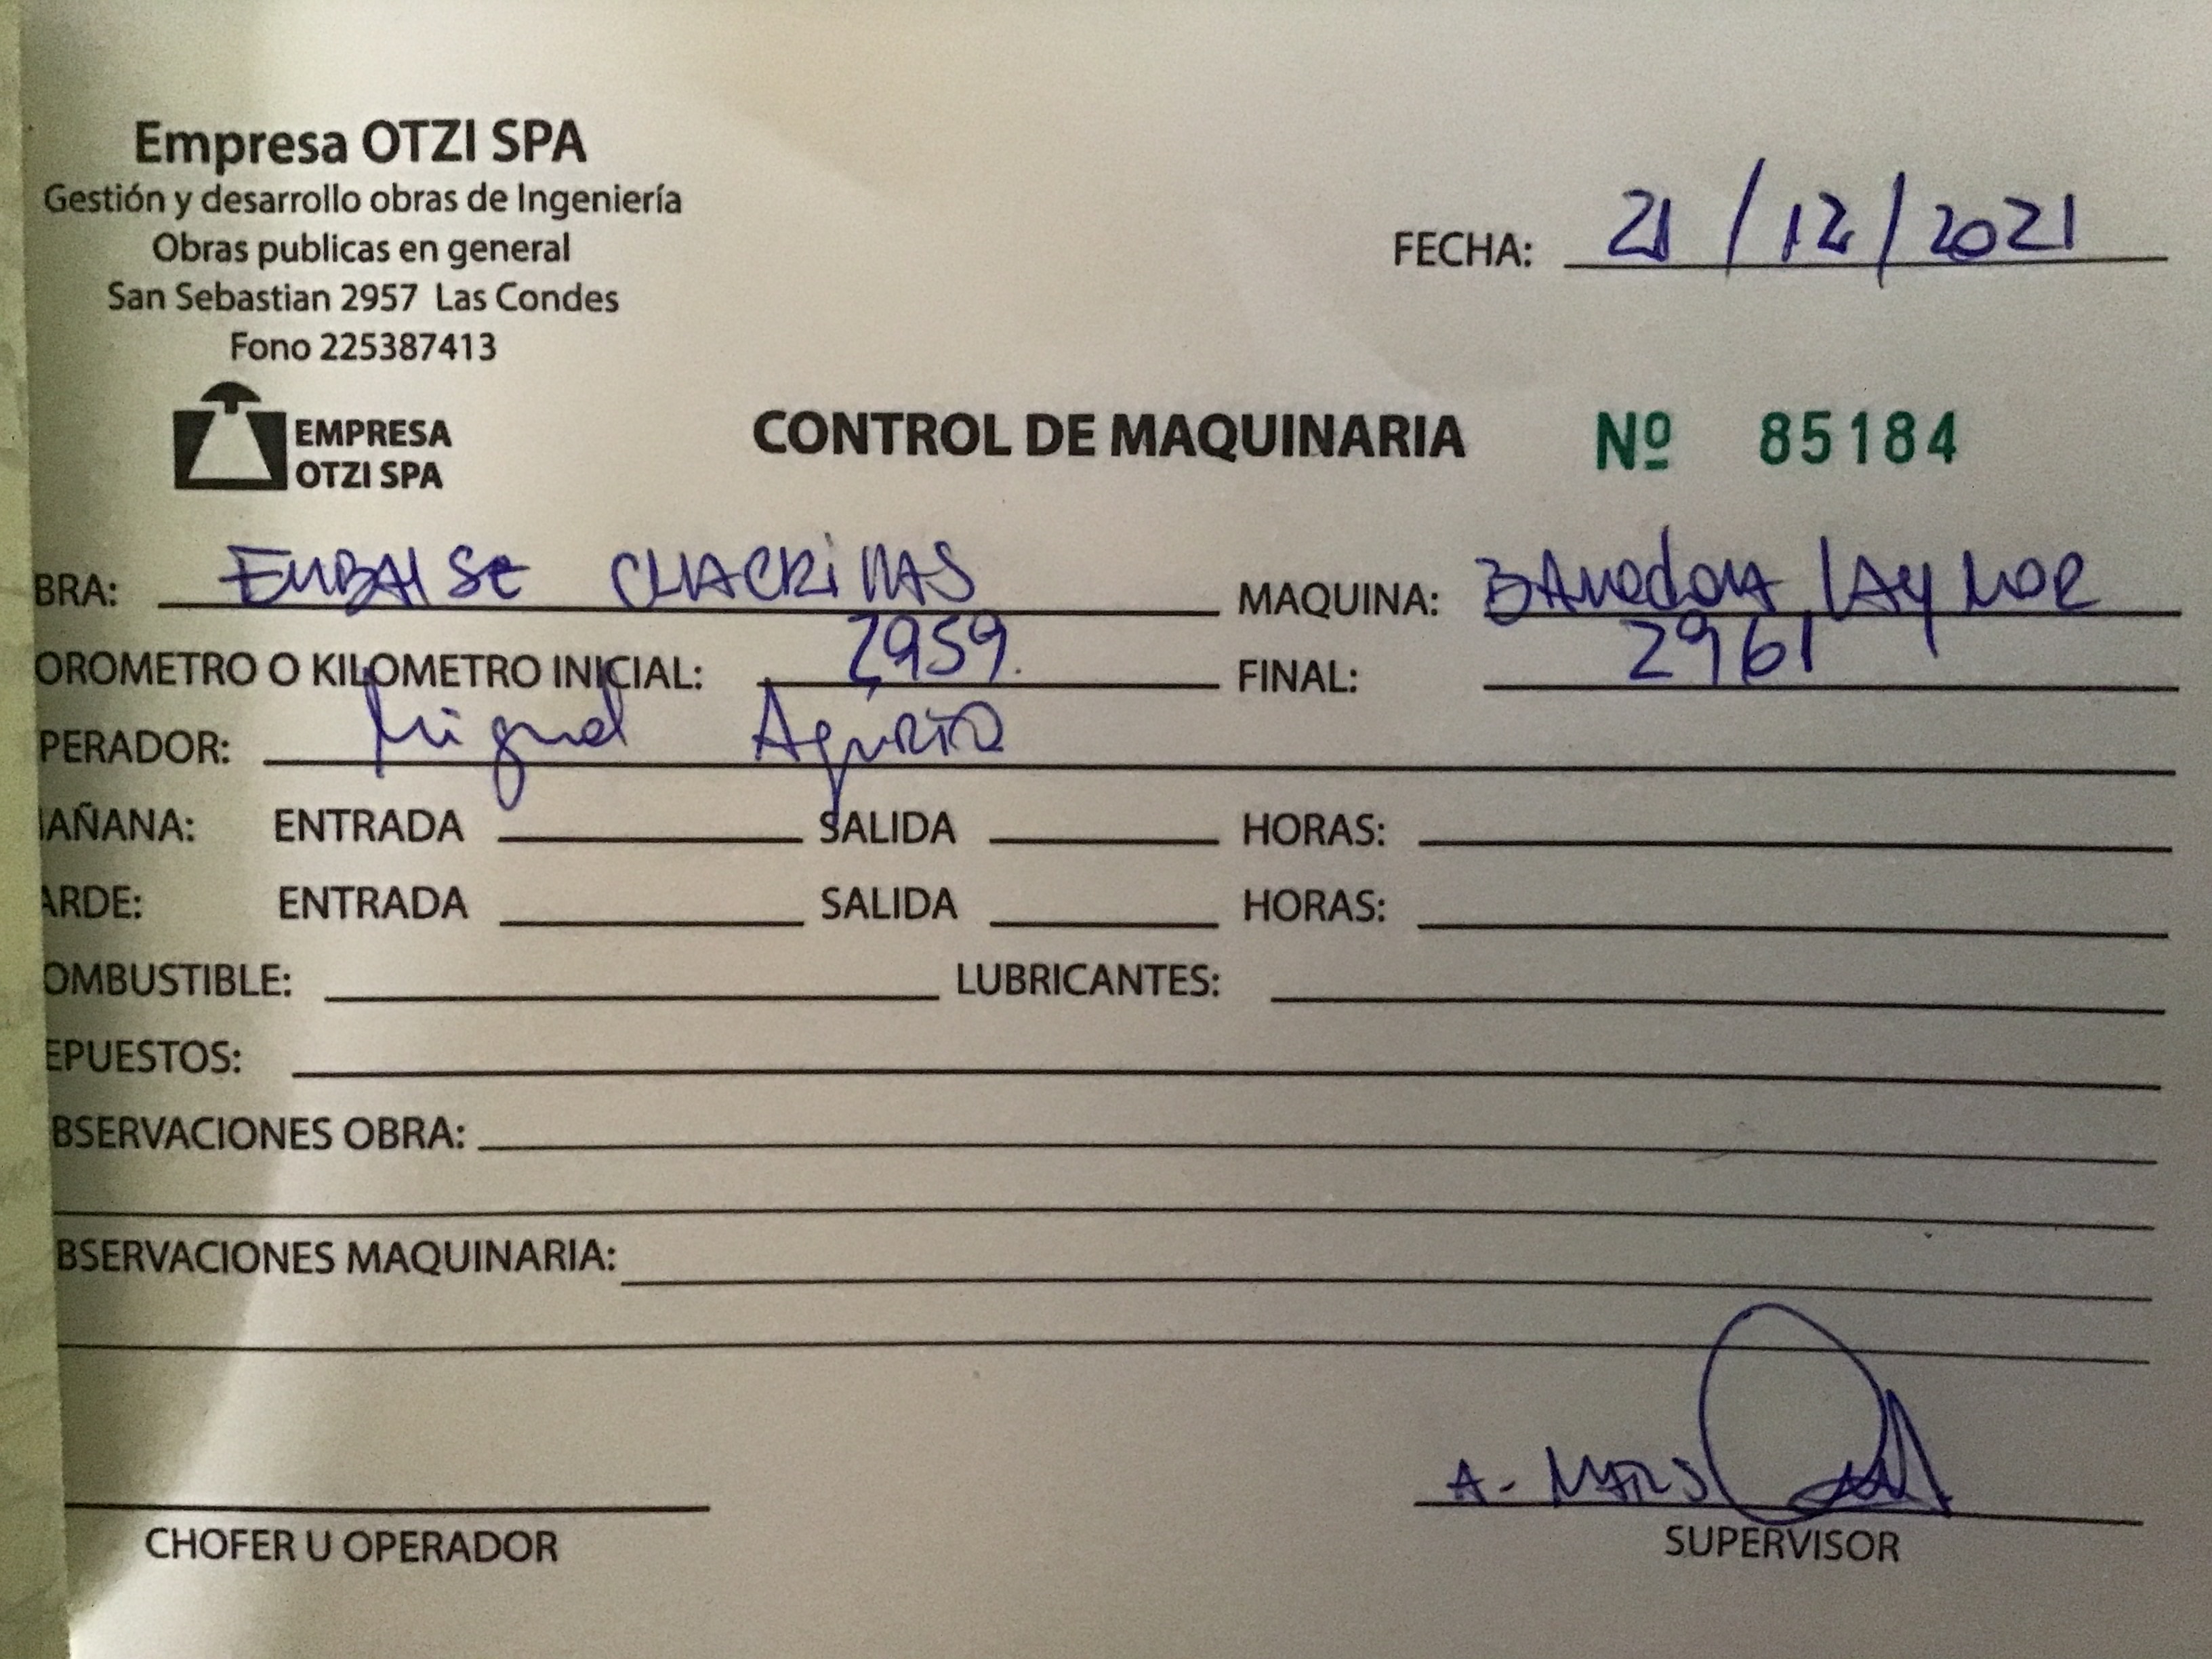 Empresa OTZI SPA
Gestión y desarrollo obras de Ingeniería
Obras publicas en general
San Sebastian 2957 Las Condes
Fono 225387413
FECHA: 21/12/2021
EMPRESA
OTZI SPA
CONTROL DE MAQUINARIA Nº 85184
BRA: EMBALSE CHACRiLLAS MAQUINA: BAnedora
OROMETRO O KILOMETRO INICIAL: 2959. FINAL: 2961
PERADOR: Miguel Aguirre
IAÑANA: ENTRADA SALIDA HORAS:
ARDE: ENTRADA SALIDA HORAS:
OMBUSTIBLE: LUBRICANTES:
EPUESTOS:
BSERVACIONES OBRA:
BSERVACIONES MAQUINARIA:
A.
CHOFER U OPERADOR SUPERVISOR